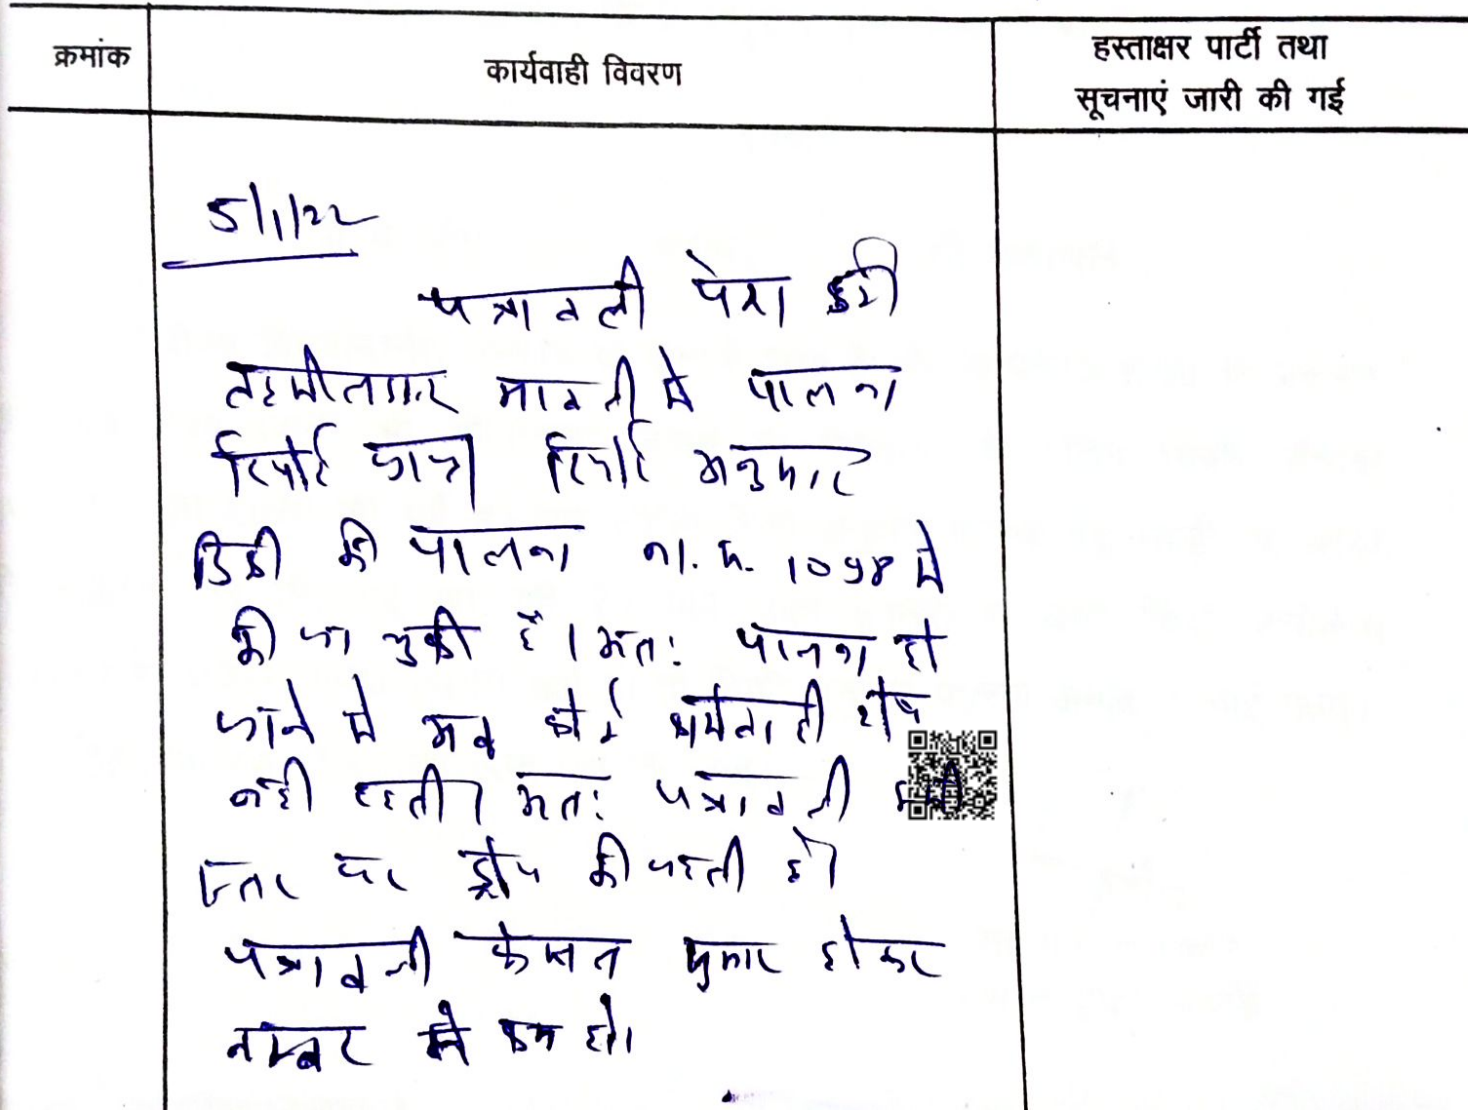 क्रमांक
कार्यवाही विवरण
हस्ताक्षर पार्टी तथा
सूचनाएं जारी की गई
5/1/22
पत्रावली पेश हुई
तहसीलदार मावली से पालना
रिपोर्ट प्राप्त रिपोर्ट अनुसार
डिक्री की पालना ना.क. 1098 से
की जा चुकी है। अतः पालना हो
जाने से अब कोई कार्यवाही शेष
नही रहती। अतः पत्रावली इसी
स्तर पर ड्रोप की जाती है।
पत्रावली फैसल शुमार होकर
नम्बर से कम हो।